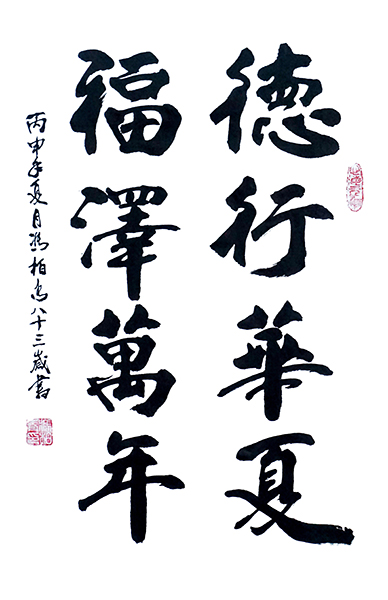 德行華夏
福澤萬年
丙申年夏月馮柏喬八十三歲書